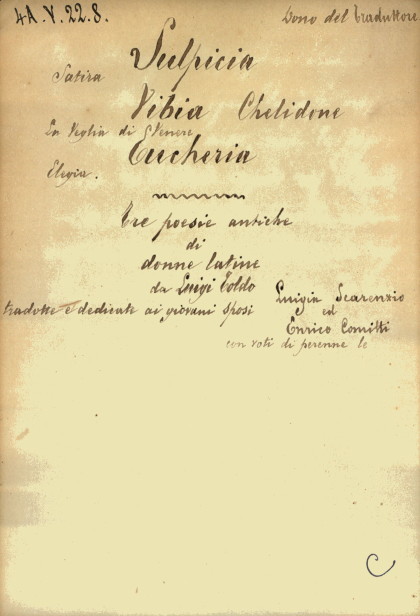 4A.V.22.8.
Dono del Traduttore
Sulpicia
Satira
Vibia Chelidone
La Veglia di Venere
Eucheria
Elegia.
Tre poesie antiche
di
donne latine
da Luigi Toldo
tradotte e dedicate ai giovani sposi
Luigia Scarenzio
ed
Enrico Comitti
con voti di perenne le
C